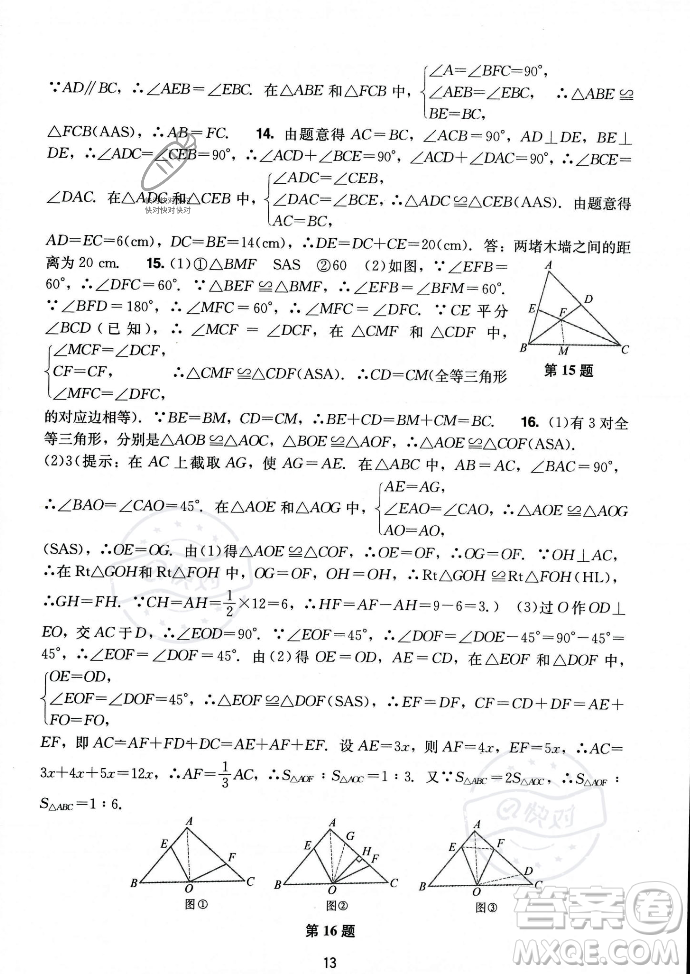 ∵AD∥BC，∴∠AEB=∠EBC．在△ABE 和△FCB 中，{∠A=∠BFC=90°，∠AEB=∠EBC，BE=BC， ∴△ABE≌
△FCB(AAS)，∴AB=FC． 14. 由题意得 AC=BC，∠ACB=90°，AD⊥DE，BE⊥
DE，∴∠ADC=∠CEB=90°，∴∠ACD+∠BCE=90°，∠ACD+∠DAC=90°，∴∠BCE=
∠DAC．在△ADC 和△CEB 中，{∠ADC=∠CEB，∠DAC=∠BCE，AC=BC， ∴△ADC≌△CEB(AAS)．由题意得
AD=EC=6(cm)，DC=BE=14(cm)，∴DE=DC+CE=20(cm)．答：两堵木墙之间的距
离为 20 cm． 15. (1)①△BMF SAS ②60 (2)如图，∵∠EFB=
60°，∴∠DFC=60°．∵△BEF≌△BMF，∴∠EFB=∠BFM=60°．
∵∠BFD=180°，∴∠MFC=60°，∴∠MFC=∠DFC．∵CE 平分
∠BCD(已知)，∴∠MCF=∠DCF．在△MCF 和△DCF 中，
{∠MCF=∠DCF，CF=CF，∠MFC=∠DFC， ∴△MCF≌△DCF(ASA)．∴CM=CD(全等三角形
的对应边相等)．∵BE=BM，CD=CM，∴BE+CD=BM+CM=BC． 16. (1)有 3 对全
等三角形，分别是△AOB≌△AOC，△BOE≌△AOF，△AOE≌△COF(ASA)．
(2)3(提示：在 AC 上截取 AG，使 AG=AE．∵△AOB≌△AOC，∠BAC=90°，
∴∠BAO=∠CAO=45°．在△AOE 和△AOG 中，{AE=AG，∠EAO=∠CAO，AO=AO ∴△AOE≌△AOG
(SAS)，∴OE=OG．由(1)得△AOE≌△COF，∴OE=OF，∴OG=OF．∵OH⊥AC，
∴在 Rt△GOH 和 Rt△FOH 中，OG=OF，OH=OH，∴Rt△GOH≌Rt△FOH(HL)，
∴GH=FH．∵CH=AH=1/2×12=6，∴HF=AF−AH=9−6=3．) (3)过 O 作 OD⊥
EO，交 AC 于 D，∴∠EOD=90°．∵∠EOF=45°，∴∠DOF=∠EOD−∠EOF=90°−45°=
45°，∴∠EOF=∠DOF=45°．由(2)得 OE=OD，AE=CD，在△EOF 和△DOF 中，
{OE=OD，∠EOF=∠DOF=45°，FO=FO， ∴△EOF≌△DOF(SAS)，∴EF=DF，∴CF=CD+DF=AE+
EF，即 AC=AF+FD+DC=AF+AE+EF．设 AE=3x，则 AF=4x，EF=5x，∴AC=
3x+4x+5x=12x，∴AF=1/3AC，∴S△AOF∶S△AOC=1∶3．又∵S△ABC=2S△AOC，∴S△AOF∶
S△ABC=1∶6．
A
E D
F
B M C
第 15 题
A
E F
B O C
图①
A
G
E H F
B O C
图②
A
E F
D
B O C
图③
第 16 题
13
快对快对快对
快对快对快对
快对
快对
答案圈
MXQE.COM